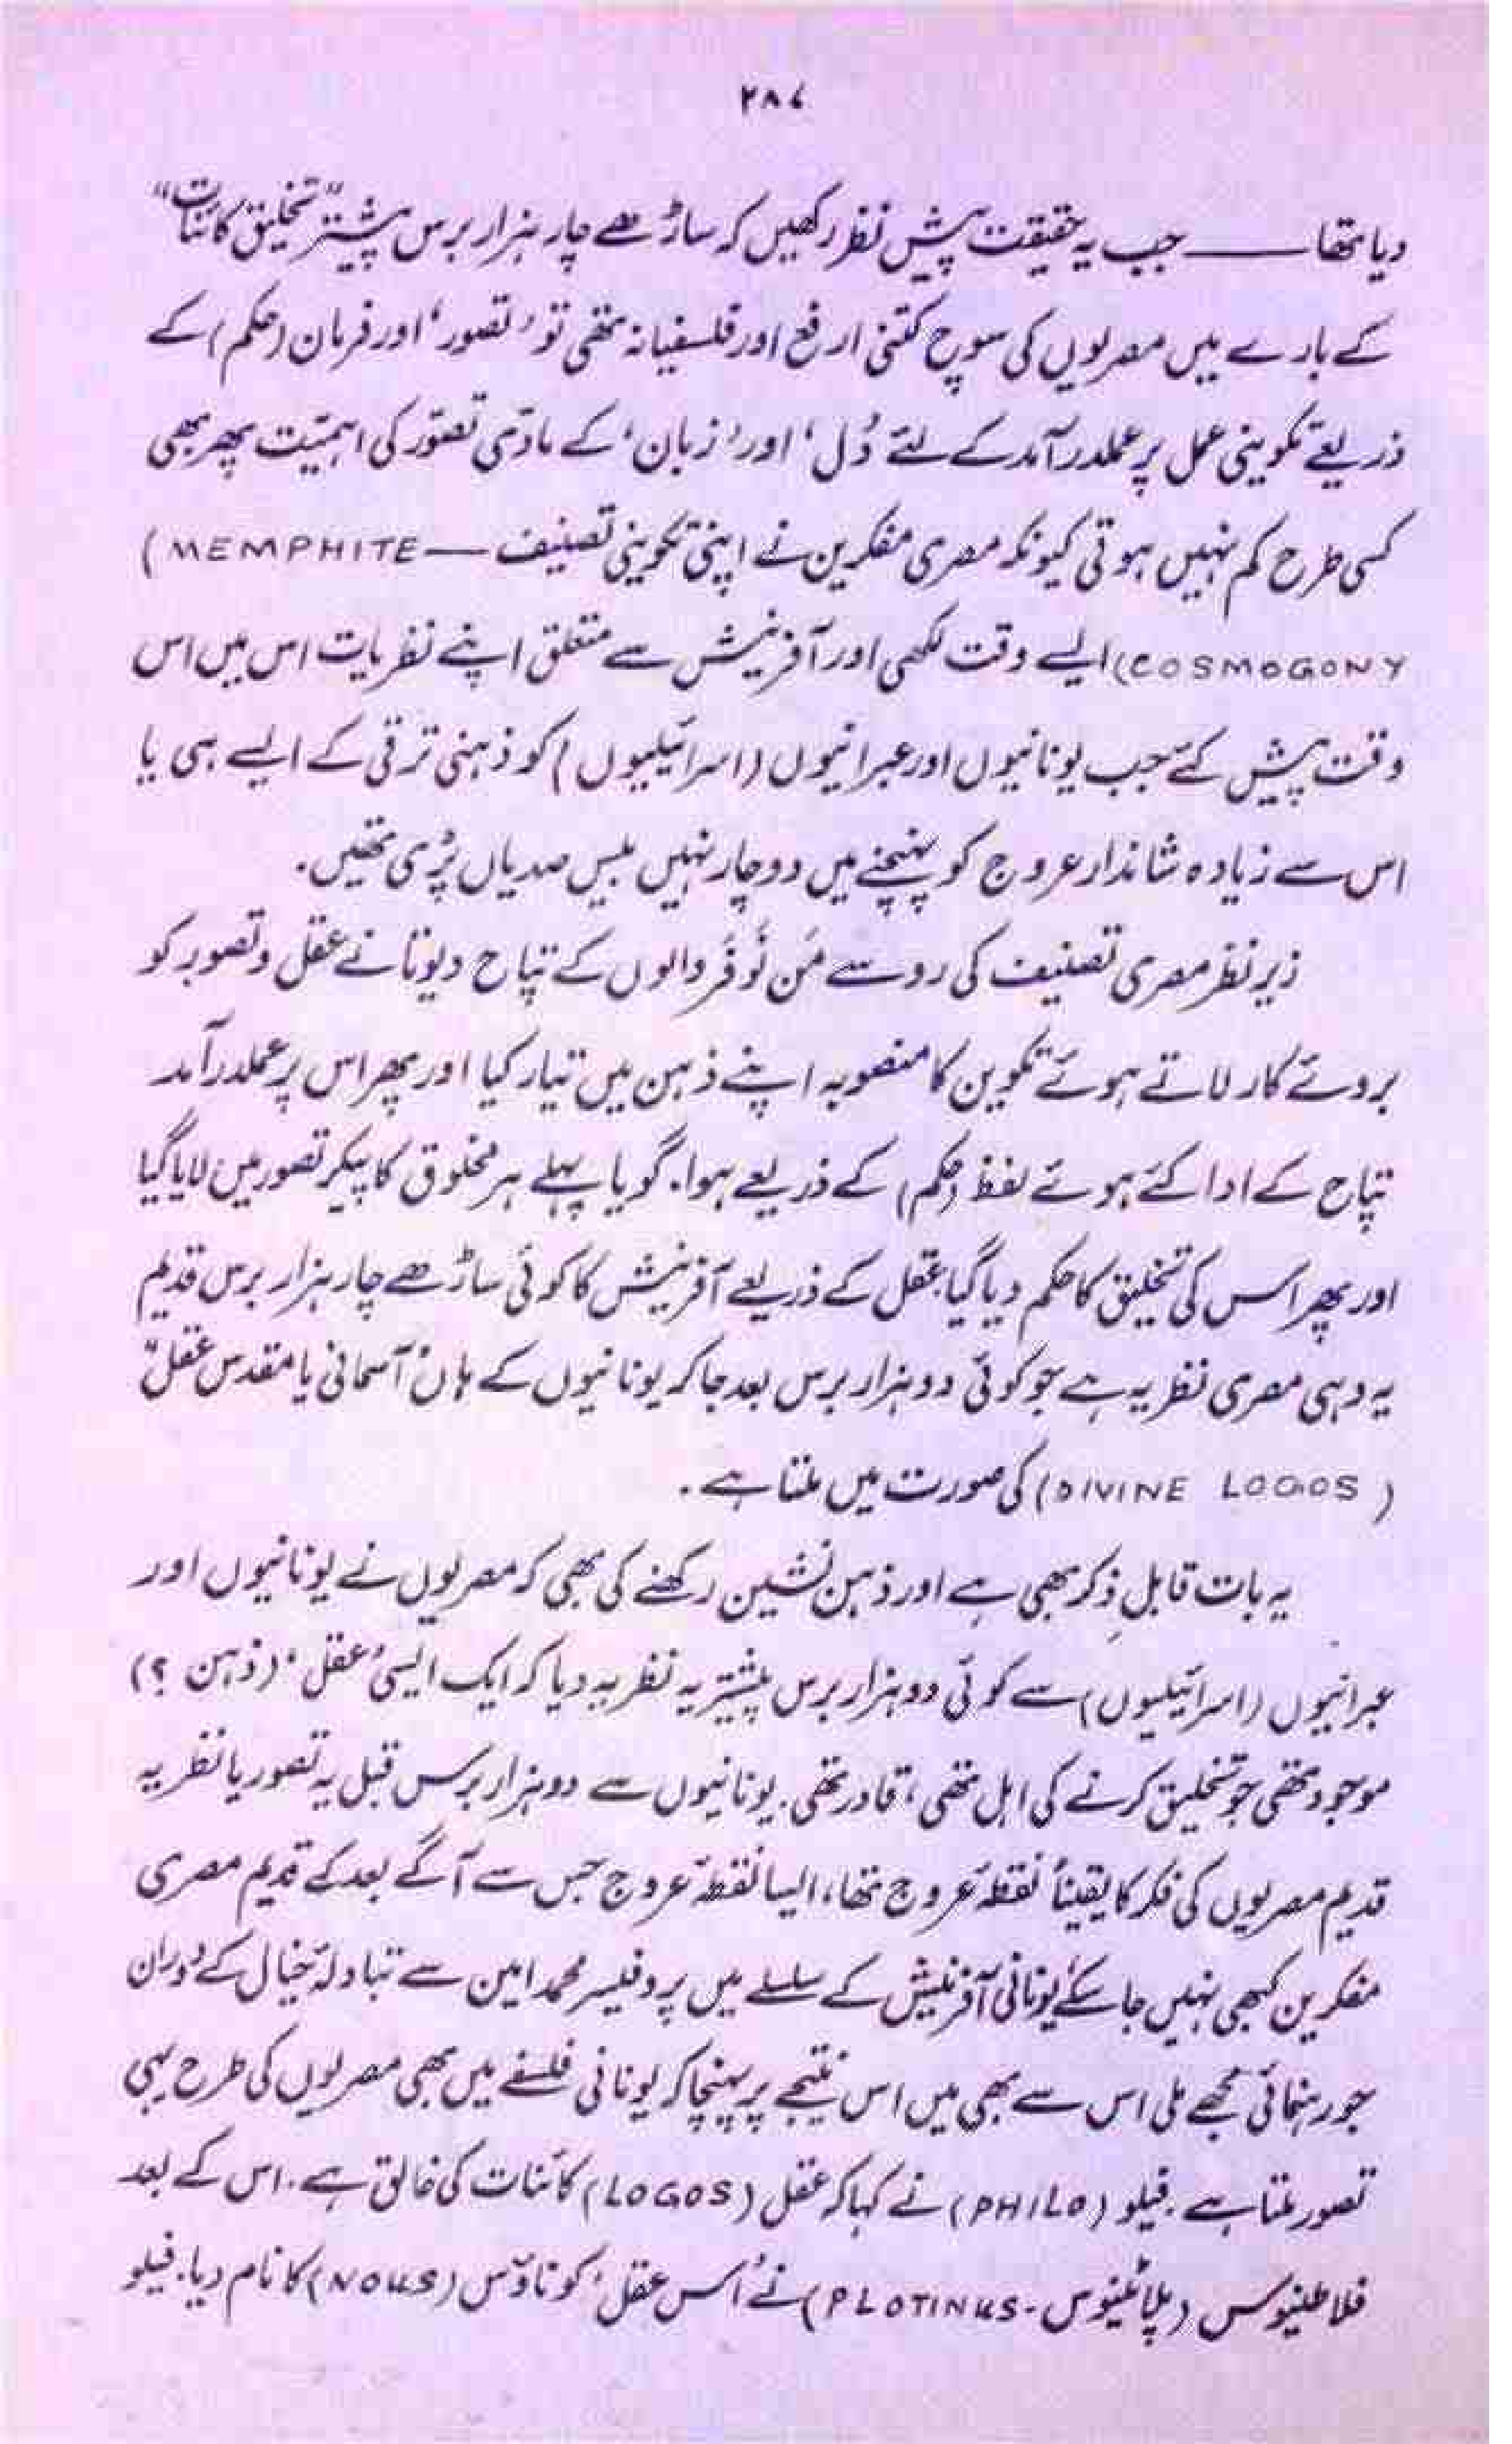 ۲۸۷
دیا تھا ——— جب یہ حقیقت پیش نظر رکھیں کہ ساڑھے چار ہزار برس پیشتر "تخلیق کائنات"
کے بارے میں مصریوں کی سوچ کتنی ارفع اور فلسفیانہ تھی تو 'تصور' اور فرمان (حکم) کے
ذریعے تکوینی عمل پر عملدرآمد کے لئے 'دل' اور 'زبان' کے مادّی تصوّر کی اہمیّت پھر بھی
کسی طرح کم نہیں ہوتی کیونکہ مصری مفکرین نے اپنی تکوینی تصنیف — MEMPHITE)
COSMOGONY) ایسے وقت لکھی اور آفرینش سے متعلق اپنے نظریات اس میں اس
وقت پیش کئے جب یونانیوں اور عبرانیوں (اسرائیلیوں) کو ذہنی ترقی کے ایسے ہی یا
اس سے زیادہ شاندار عروج کو پہنچنے میں دو چار نہیں بیس صدیاں پڑی تھیں.
زیر نظر مصری تصنیف کی رو سے مَن نُوفَر والوں کے پتاح دیوتا نے عقل و تصور کو
بروئے کار لاتے ہوئے تکوین کا منصوبہ اپنے ذہن میں تیار کیا اور پھر اس پر عملدرآمد
پتاح کے ادا کئے ہوئے لفظ (حکم) کے ذریعے ہوا. گویا پہلے ہر مخلوق کا پیکر تصور میں لایا گیا
اور پھر اس کی تخلیق کا حکم دیا گیا. عقل کے ذریعے آفرینش کا کوئی ساڑھے چار ہزار برس قدیم
یہ وہی مصری نظریہ ہے جو کوئی دو ہزار برس بعد جا کر یونانیوں کے ہاں "آسمانی یا مقدس عقل"
(DIVINE LOGOS) کی صورت میں ملتا ہے.
یہ بات قابلِ ذِکر بھی ہے اور ذہن نشین رکھنے کی بھی کہ مصریوں نے یونانیوں اور
عبرانیوں (اسرائیلیوں) سے کوئی دو ہزار برس پیشتر یہ نظریہ دیا کہ ایک ایسی 'عقل' (ذہن ؟)
موجود تھی جو تخلیق کرنے کی اہل تھی، قادر تھی. یونانیوں سے دو ہزار برس قبل یہ تصور یا نظریہ
قدیم مصریوں کی فکر کا یقیناً نقطۂ عروج تھا، ایسا نقطۂ عروج جس سے آگے بعد کے قدیم مصری
مفکرین کبھی نہیں جا سکے. یونانی آفرینش کے سلسلے میں پروفیسر محمد امین سے تبادلۂ خیال کے دوران
جو رہنمائی مجھے ملی اس سے بھی میں اس نتیجے پر پہنچا کہ یونانی فلسفے میں بھی مصریوں کی طرح یہی
تصور ملتا ہے. فیلو (PHILO) نے کہا کہ عقل (LOGOS) کائنات کی خالق ہے. اس کے بعد
فلاطینوس (پلاٹینوس - PLOTINUS) نے 'اُس عقل' کو ناؤس (NOUS) کا نام دیا. فیلو